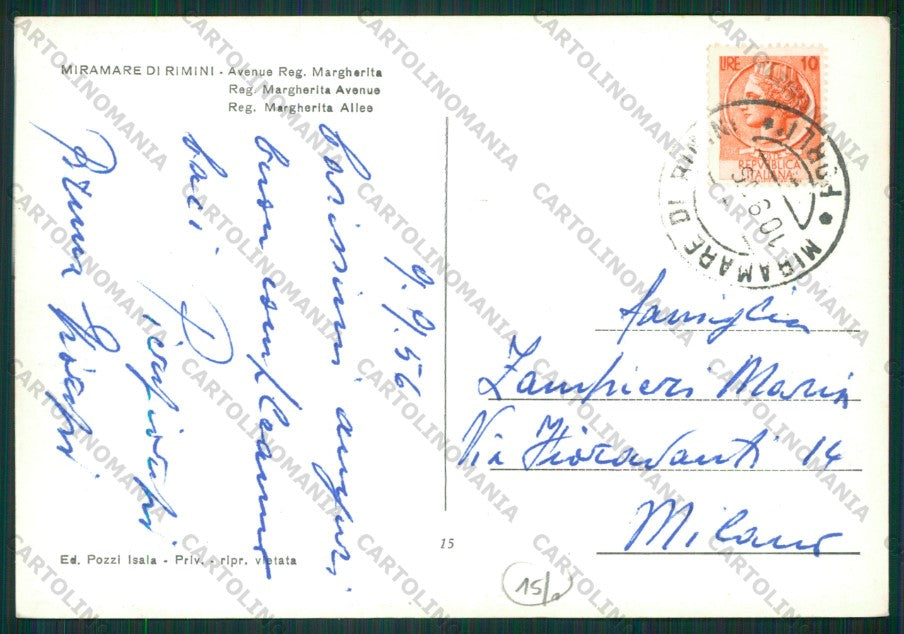 MIRAMARE DI RIMINI - Avenue Reg. Margherita
Reg. Margherita Avenue
Reg. Margherita Allee
LIRE 10
REPUBBLICA
ITALIANA
MIRAMARE DI RIMINI * FORLI *
10.9.56
9.9.56
Carissimi auguri
buon compleanno
baci
Bruna
famiglia
Zampieri Maria
Via Fioravanti 14
Milano
15
15/
Ed. Pozzi Isaia - Priv. - ripr. vietata
CARTOLINOMANIA